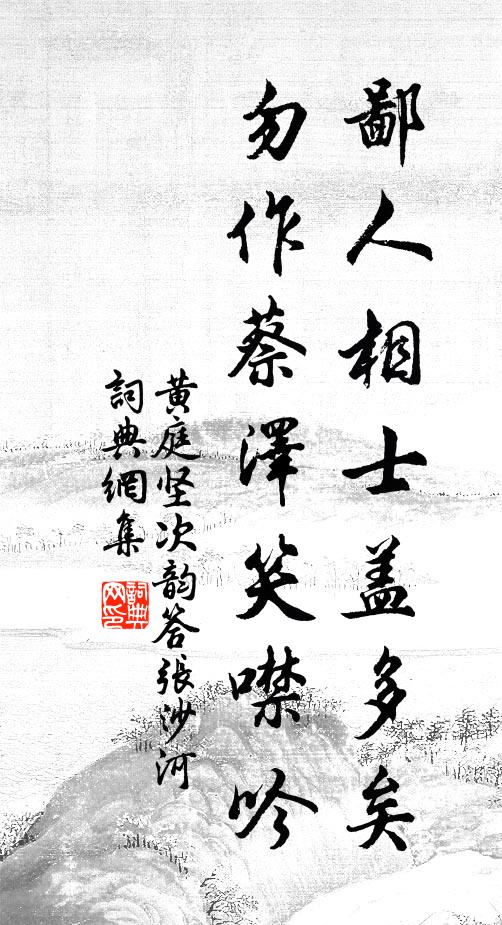 鄙人相士盖多矣
勿作蔡澤笑噤吟
黄庭坚次韵答張沙河
詞典網集
詞典网印